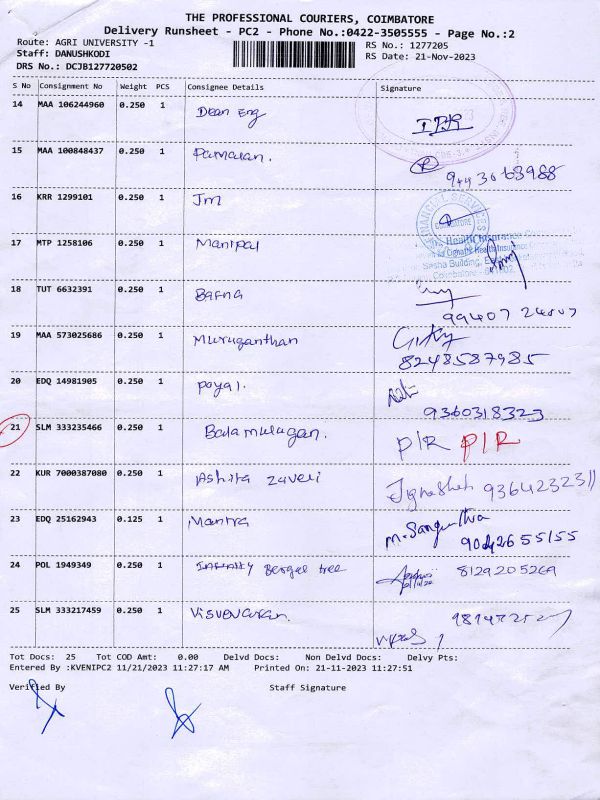 THE PROFESSIONAL COURIERS, COIMBATORE
Delivery Runsheet - PC2 - Phone No.:0422-3505555 - Page No.:2
Route: AGRI UNIVERSITY -1 RS No.: 1277205
Staff: DANUSHKODI RS Date: 21-Nov-2023
DRS No.: DCJB127720502
S No Consignment No Weight PCS Consignee Details Signature
14 MAA 106244960 0.250 1 Dean Eng
15 MAA 100848437 0.250 1
16 KRR 1299101 0.250 1 Jm
17 MTP 1258106 0.250 1 Manipal
18 TUT 6632391 0.250 1 Barna
19 MAA 573025686 0.250 1 Muruganthan
8248587985
20 EDQ 14981905 0.250 1 Poyal.
9360318323
21 SLM 333235466 0.250 1 Balamurugan. P/R P/R
22 KUR 7000387080 0.250 1 Ashita zaveri
23 EDQ 25162943 0.125 1 Mantra
9042655155
24 POL 1949349 0.250 1 tree 8129205269
25 SLM 333217459 0.250 1
Tot Docs: 25 Tot COD Amt: 0.00 Delvd Docs: Non Delvd Docs: Delvy Pts:
Entered By :KVENIPC2 11/21/2023 11:27:17 AM Printed On: 21-11-2023 11:27:51
Verified By Staff Signature